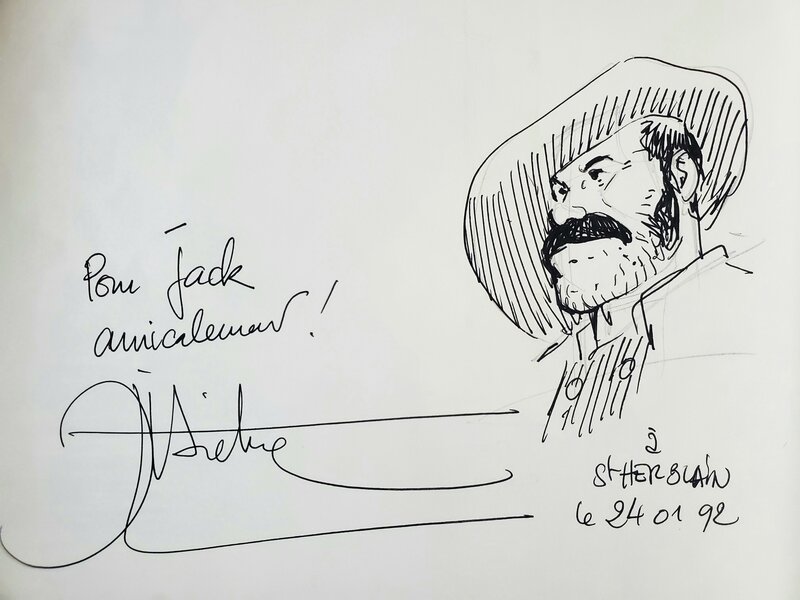 Pour Jack
amicalement !
à
St HERBLAIN
le 24 01 92